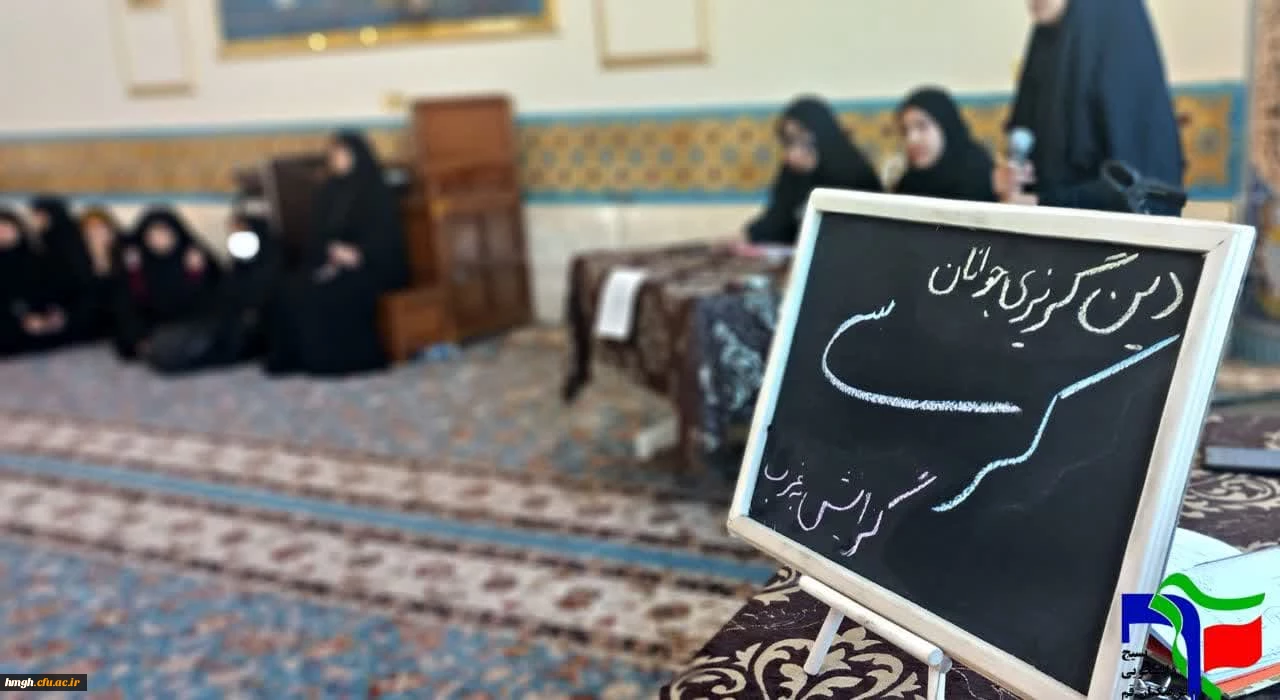 دین گریزی جوانان
کرسی
گرایش به غرب
hmgh.cfu.ac.ir